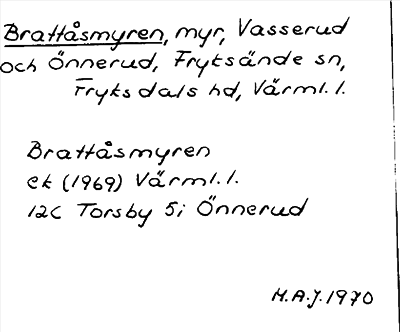 Brattåsmyren, myr, Vasserud
och Önnerud, Fryksände sn,
Fryksdals hd, Värml. l.
Brattåsmyren
ek (1969) Värml. l.
12C Torsby 5i Önnerud
H.A.J. 1970